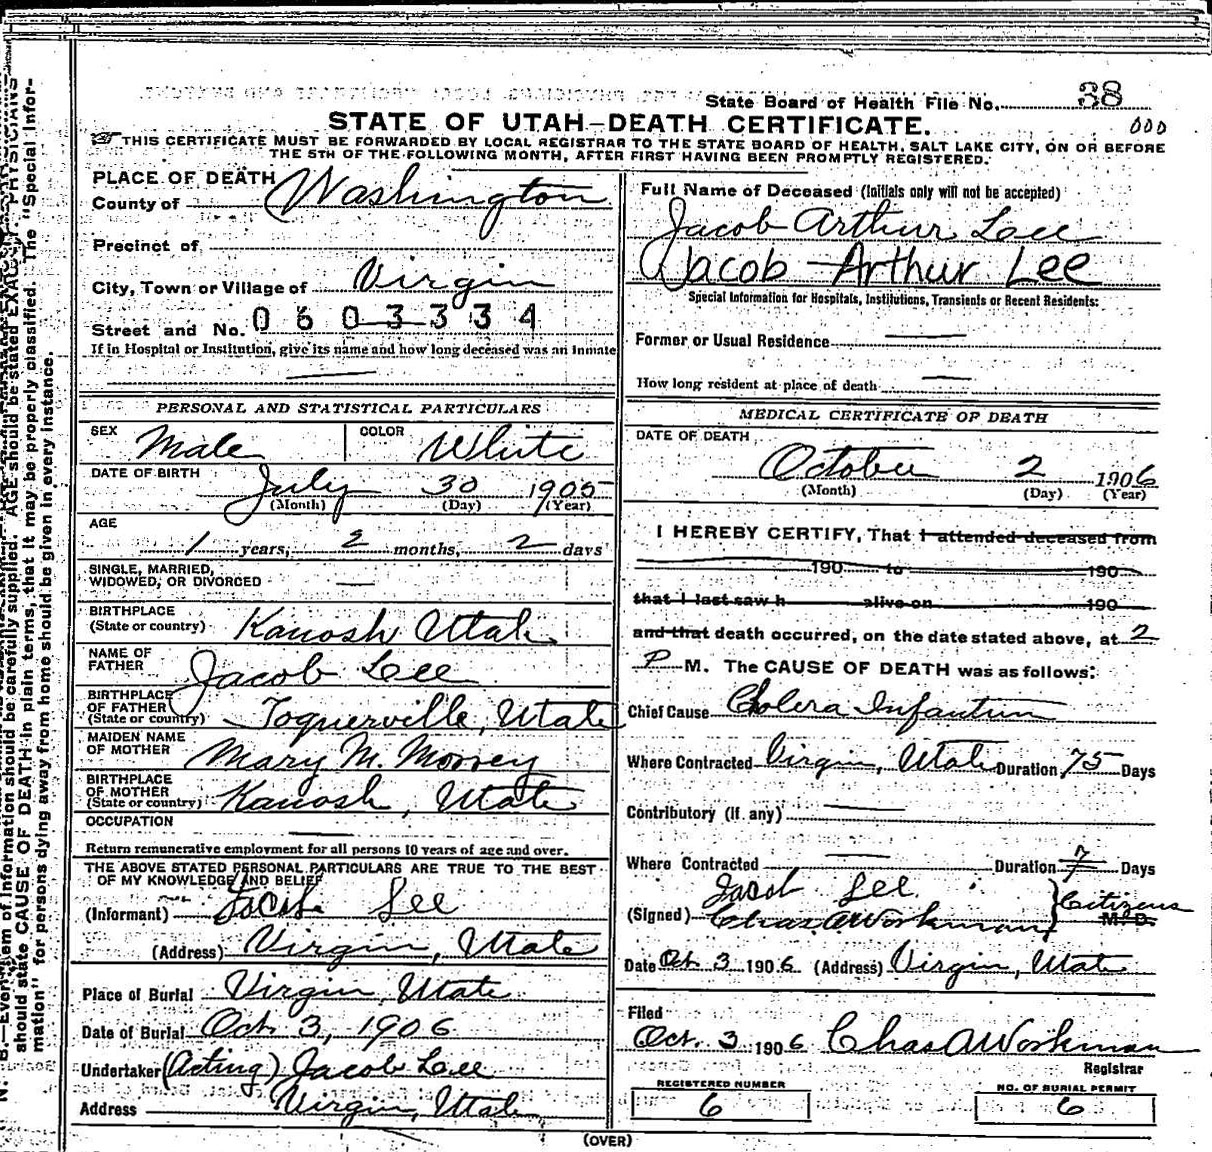 State Board of Health File No. 38
000
STATE OF UTAH-DEATH CERTIFICATE.
THIS CERTIFICATE MUST BE FORWARDED BY LOCAL REGISTRAR TO THE STATE BOARD OF HEALTH, SALT LAKE CITY, ON OR BEFORE
THE 5TH OF THE FOLLOWING MONTH, AFTER FIRST HAVING BEEN PROMPTLY REGISTERED.
PLACE OF DEATH
County of Washington
Precinct of
City, Town or Village of Virgin
Street and No. 0603334
If in Hospital or Institution, give its name and how long deceased was an inmate
PERSONAL AND STATISTICAL PARTICULARS
SEX Male COLOR White
DATE OF BIRTH July 30 1905
(Month) (Day) (Year)
AGE
1 years, 2 months, 2 days
SINGLE, MARRIED,
WIDOWED, OR DIVORCED
BIRTHPLACE
(State or country) Kanosh Utah
NAME OF
FATHER Jacob Lee
BIRTHPLACE
OF FATHER
(State or country) Toquerville, Utah
MAIDEN NAME
OF MOTHER Mary M. Morrey
BIRTHPLACE
OF MOTHER
(State or country) Kanosh, Utah
OCCUPATION
Return remunerative employment for all persons 10 years of age and over.
THE ABOVE STATED PERSONAL PARTICULARS ARE TRUE TO THE BEST
OF MY KNOWLEDGE AND BELIEF
(Informant) Jacob Lee
(Address) Virgin, Utah
Place of Burial Virgin, Utah
Date of Burial Oct. 3, 1906
Undertaker (Acting) Jacob Lee
Address Virgin, Utah
Full Name of Deceased (Initials only will not be accepted)
Jacob Arthur Lee
Jacob Arthur Lee
Special Information for Hospitals, Institutions, Transients or Recent Residents:
Former or Usual Residence
How long resident at place of death
MEDICAL CERTIFICATE OF DEATH
DATE OF DEATH
October 2 1906
(Month) (Day) (Year)
I HEREBY CERTIFY, That I attended deceased from
190 to 190
that I last saw h alive on 190
and that death occurred, on the date stated above, at 2
P M. The CAUSE OF DEATH was as follows:
Chief Cause Cholera Infantum
Where Contracted Virgin, Utah Duration 75 Days
Contributory (If any)
Where Contracted Duration 7 Days
Jacob Lee
(Signed) Chas. A Workman Citizens M. D.
Date Oct. 3 1906 (Address) Virgin, Utah
Filed
Oct. 3 1906 Chas A Workman
Registrar
REGISTERED NUMBER
6
NO. OF BURIAL PERMIT
6
(OVER)
N. B.—Every item of information should be carefully supplied. AGE should be stated EXACTLY. PHYSICIANS
should state CAUSE OF DEATH in plain terms, that it may be properly classified. The "Special Infor-
mation" for persons dying away from home should be given in every instance.